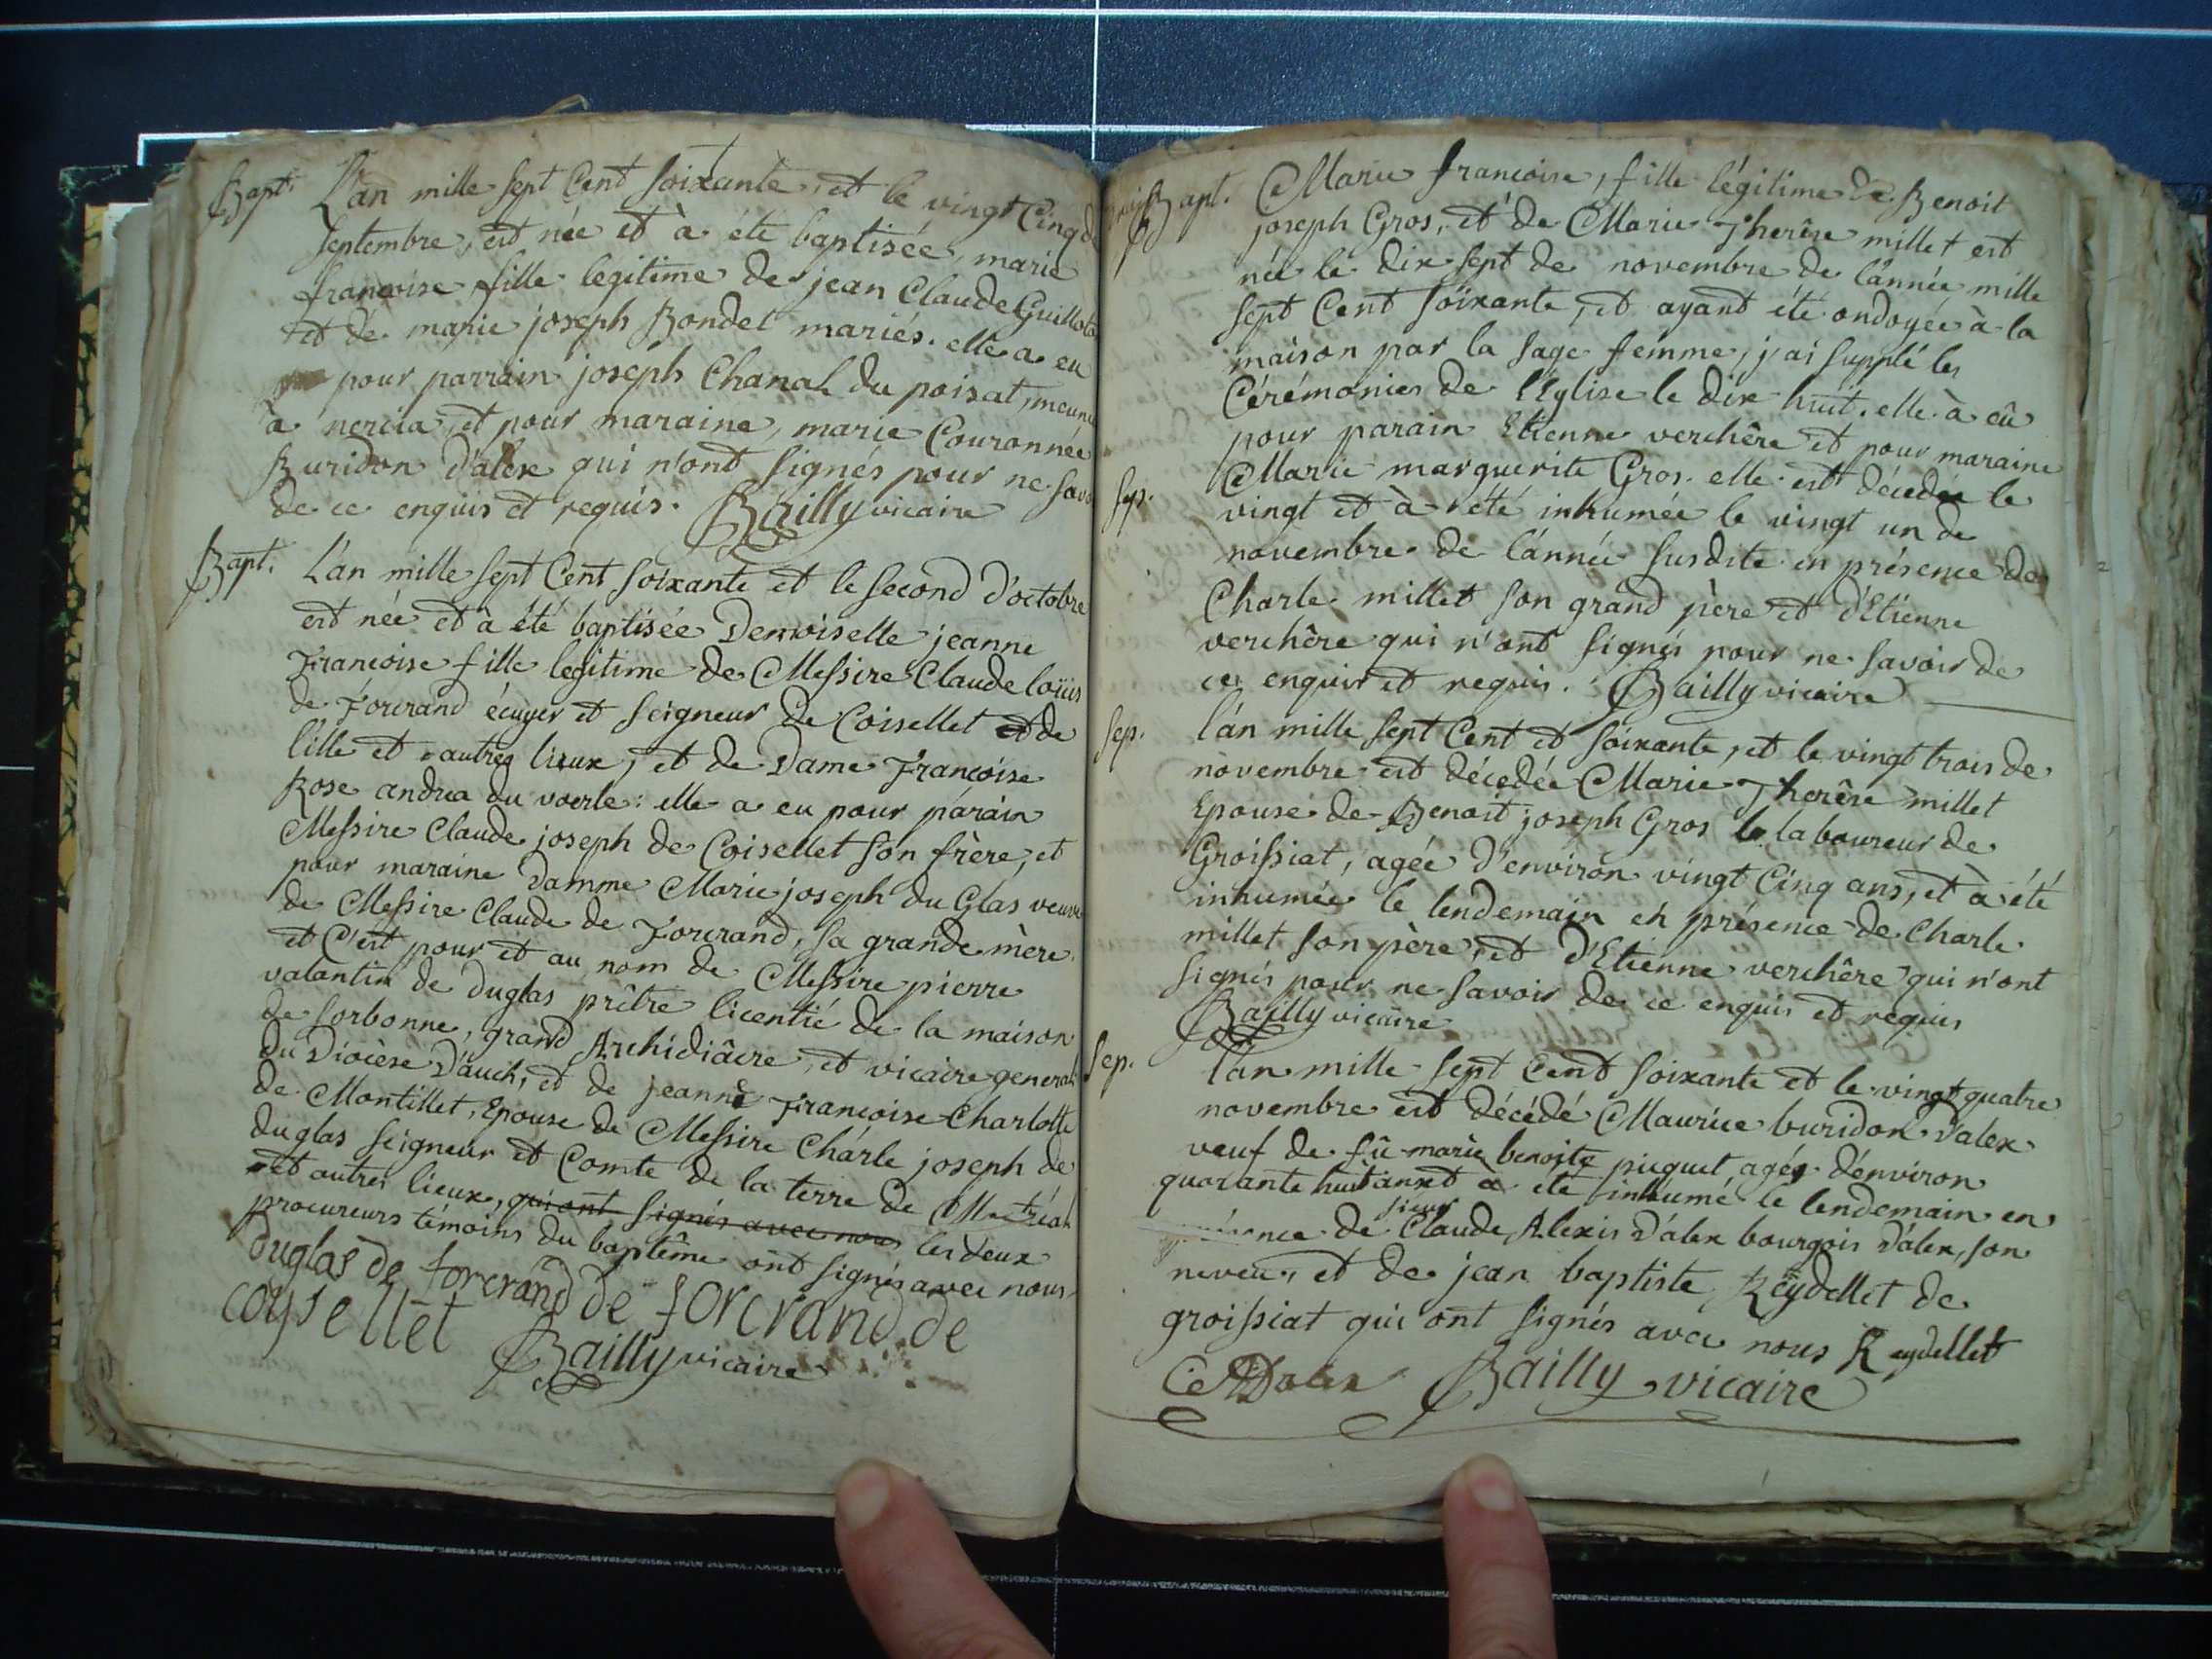 Bapt. L'an mille sept Cent soixante, et le vingt Cinq de
septembre, est née et à été baptisée, marie
francoise, fille legitime de jean Claude Guilloto
et de marie joseph Bondet mariés. elle a eu
pour parrain joseph Chanal du poisat, meunie
à nercia, et pour maraine, marie Couronnée
Buridon d'alex qui n'ont signés pour ne savo
de ce enquis et requis. Bailly vicaire
Bapt. L'an mille sept Cent soixante et le second d'octobre
est née et à été baptisée Demoiselle jeanne
Francoise fille legitime de Messire Claude loüis
de Forcrand écuyer et seigneur de Coisellet et de
l'ille et autres lieux, et de Dame Françoise
Rose andrea du voerle: elle a eu pour parain
Messire Claude joseph de Coisellet son frère, et
pour maraine Damme Marie joseph du Glas veuve
de Messire Claude de Forcrand, sa grande mère,
et C'est pour et au nom de Messire pierre
valantin de duglas prêtre licentié de la maison
de sorbonne, grand Archidiâcre, et vicaire general
du Diocèse D'auch, et de jeanne Francoise Charlotte
de Montillet, Epouse de Messire Chárle joseph de
duglas seigneur et Comte de la terre de
et autres lieux, qui ont signés avec nous les deux
procureurs témoins du baptême ont signés avec nous
duglas de forcrand de forcrand de
coysellet
Bailly vicaire
Bapt. Marie francoise, fille légitime de Benoit
joseph Gros, et de Marie Therêse millet est
née le dix sept de novembre de l'année mille
sept Cent soixante, et ayant été ondoyée à la
maison par la sage femme, j'ai supplé les
Cérémonies de l'Eglise le dix huit. elle à eû
pour parain Etienne verchêre et pour maraine
Marie marguerite Gros. elle est décedée le
Sep. vingt et à été inhumée le vingt un de
novembre de l'année susdite en présence de
Charle millet son grand père et d'Etienne
verchêre qui n'ont signés pour ne savoir de
ce enquis et requis. Bailly vicaire
Sep. l'an mille sept Cent et soixante, et le vingt trois de
novembre est décedée Marie Therêse millet
Epouse de Benoit joseph Gros laboureur de
Groissiat, agée d'environ vingt Cinq ans, et à été
inhumée le lendemain en présence de Charle
millet son père, et d'Etienne verchêre qui n'ont
signés pour ne savoir de ce enquis et requis
Bailly vicaire
Sep. l'an mille sept Cent soixante et le vingt quatre
novembre est décédé Maurice buridon d'alex
veuf de fû marie benoite picquet agés d'environ
quarante huit ans et a été inhumé le lendemain en
présence de sieur Claude Alexis d'alex bourgois d'alex, son
neveu, et de jean baptiste Reydellet de
groissiat qui ont signés avec nous Reydellet
Bailly vicaire